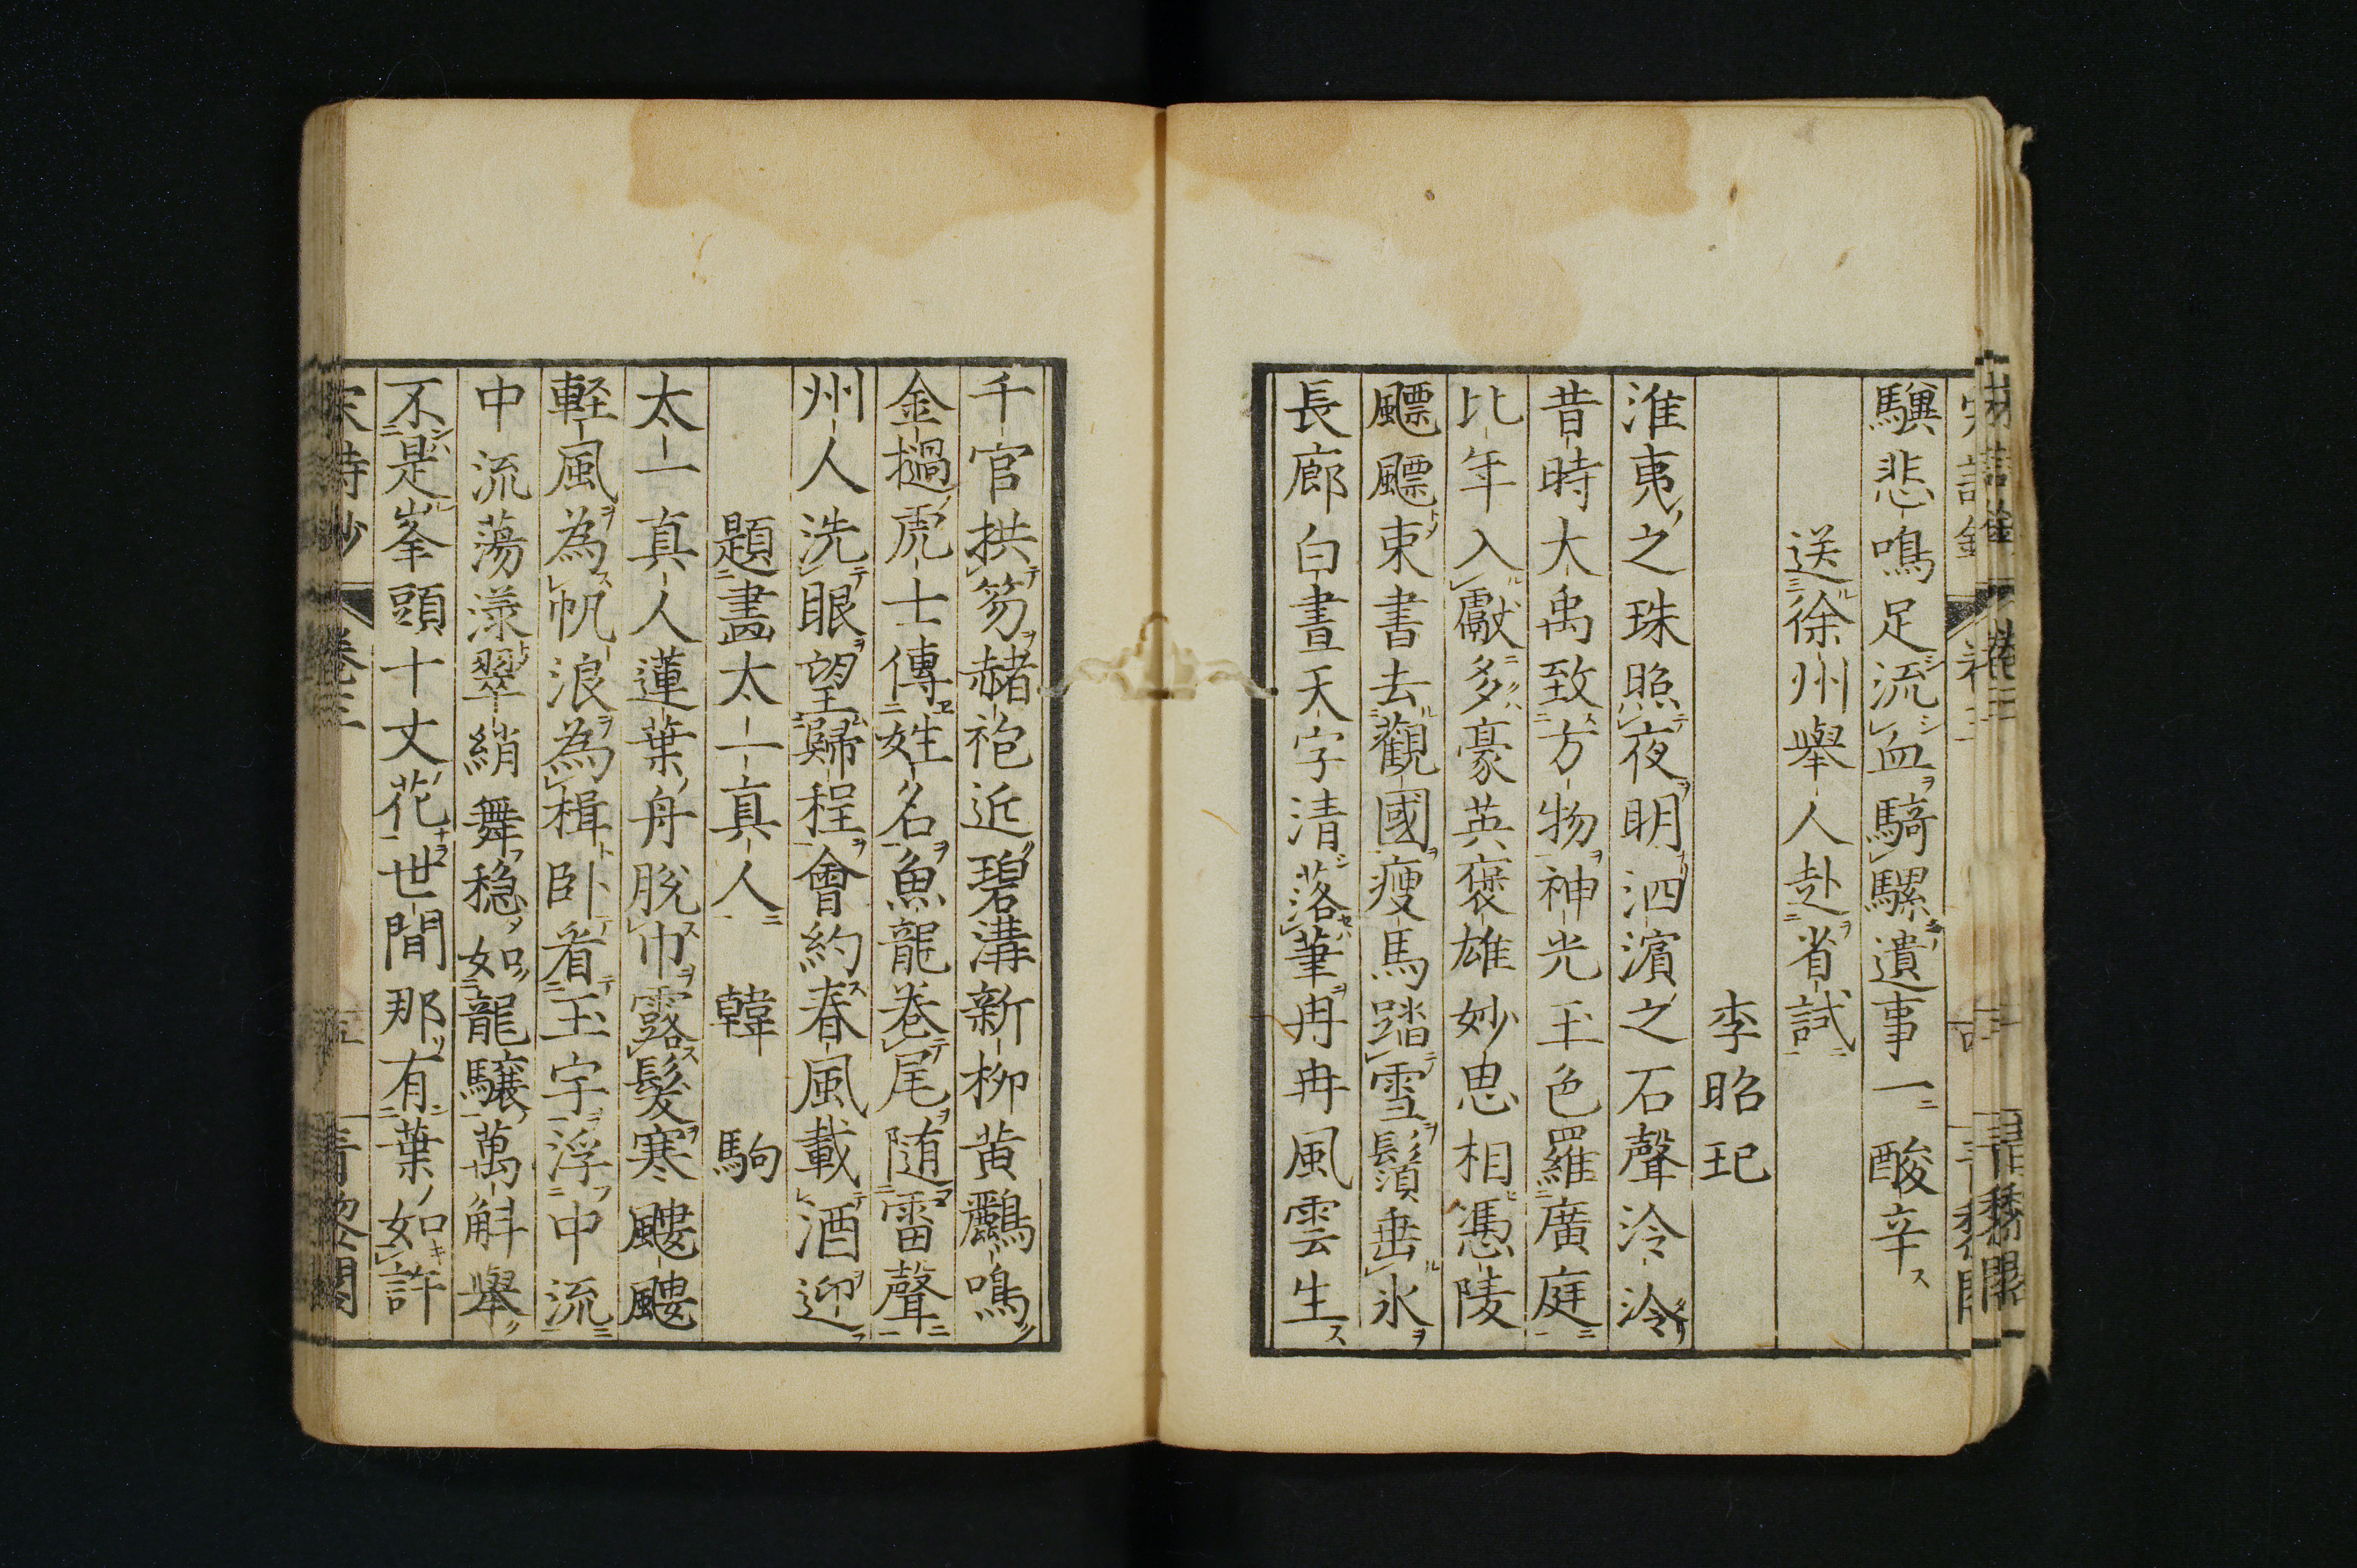 驥悲鳴足流血騎騾遺事一酸辛
送徐州舉人赴省試
李昭玘
淮夷之珠照夜明泗濱之石聲泠泠
昔時大禹致方物神光玉色羅廣庭
比年入獻多豪英褒雄妙思相憑陵
飃飃束書去觀國瘦馬踏雪鬚垂氷
長廊白晝天字清落筆冉冉風雲生
千官拱笏赭袍近碧溝新柳黄鸝鳴
金撾虎士傳姓名魚龍卷尾随雷聲
州人洗眼望歸程會約春風載酒迎
題畫太一真人　韓　駒
太一真人蓮葉舟脫巾露髮寒颼颼
軽風為帆浪為楫卧看玉字浮中流
中流蕩漾翠綃舞穏如龍驤萬斛舉
不是峯頭十丈花世間那有葉如許
宋詩鈔　卷三　五　青藜閣